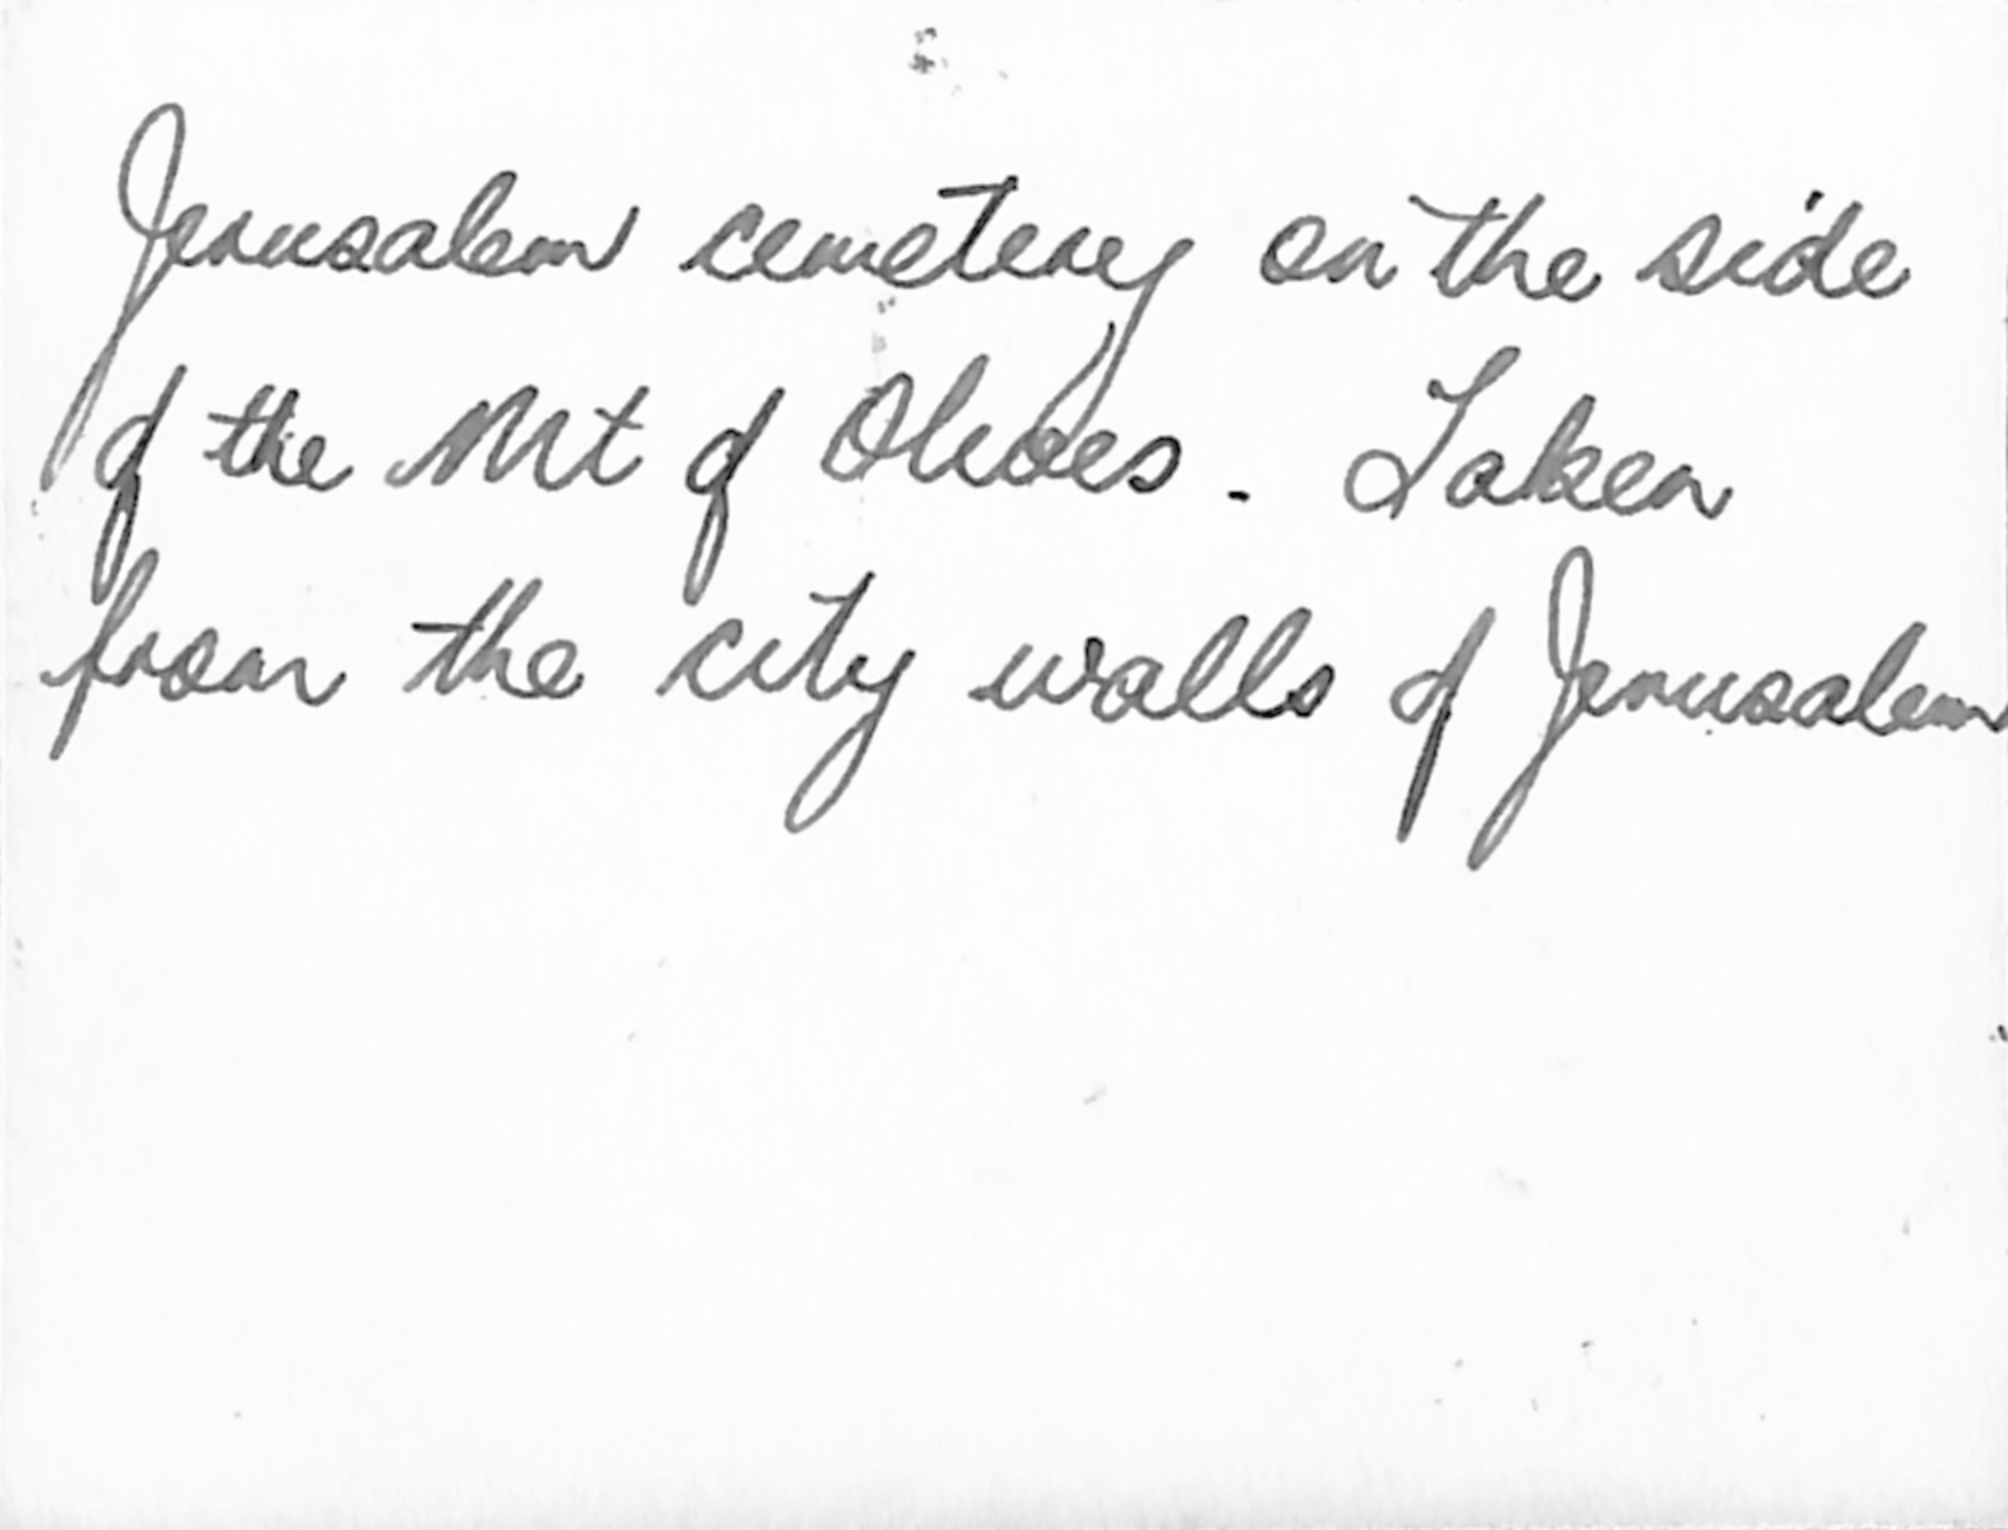 Jerusalem cemetery on the side
of the Mt of Olives. Taken
from the city walls of Jerusalem